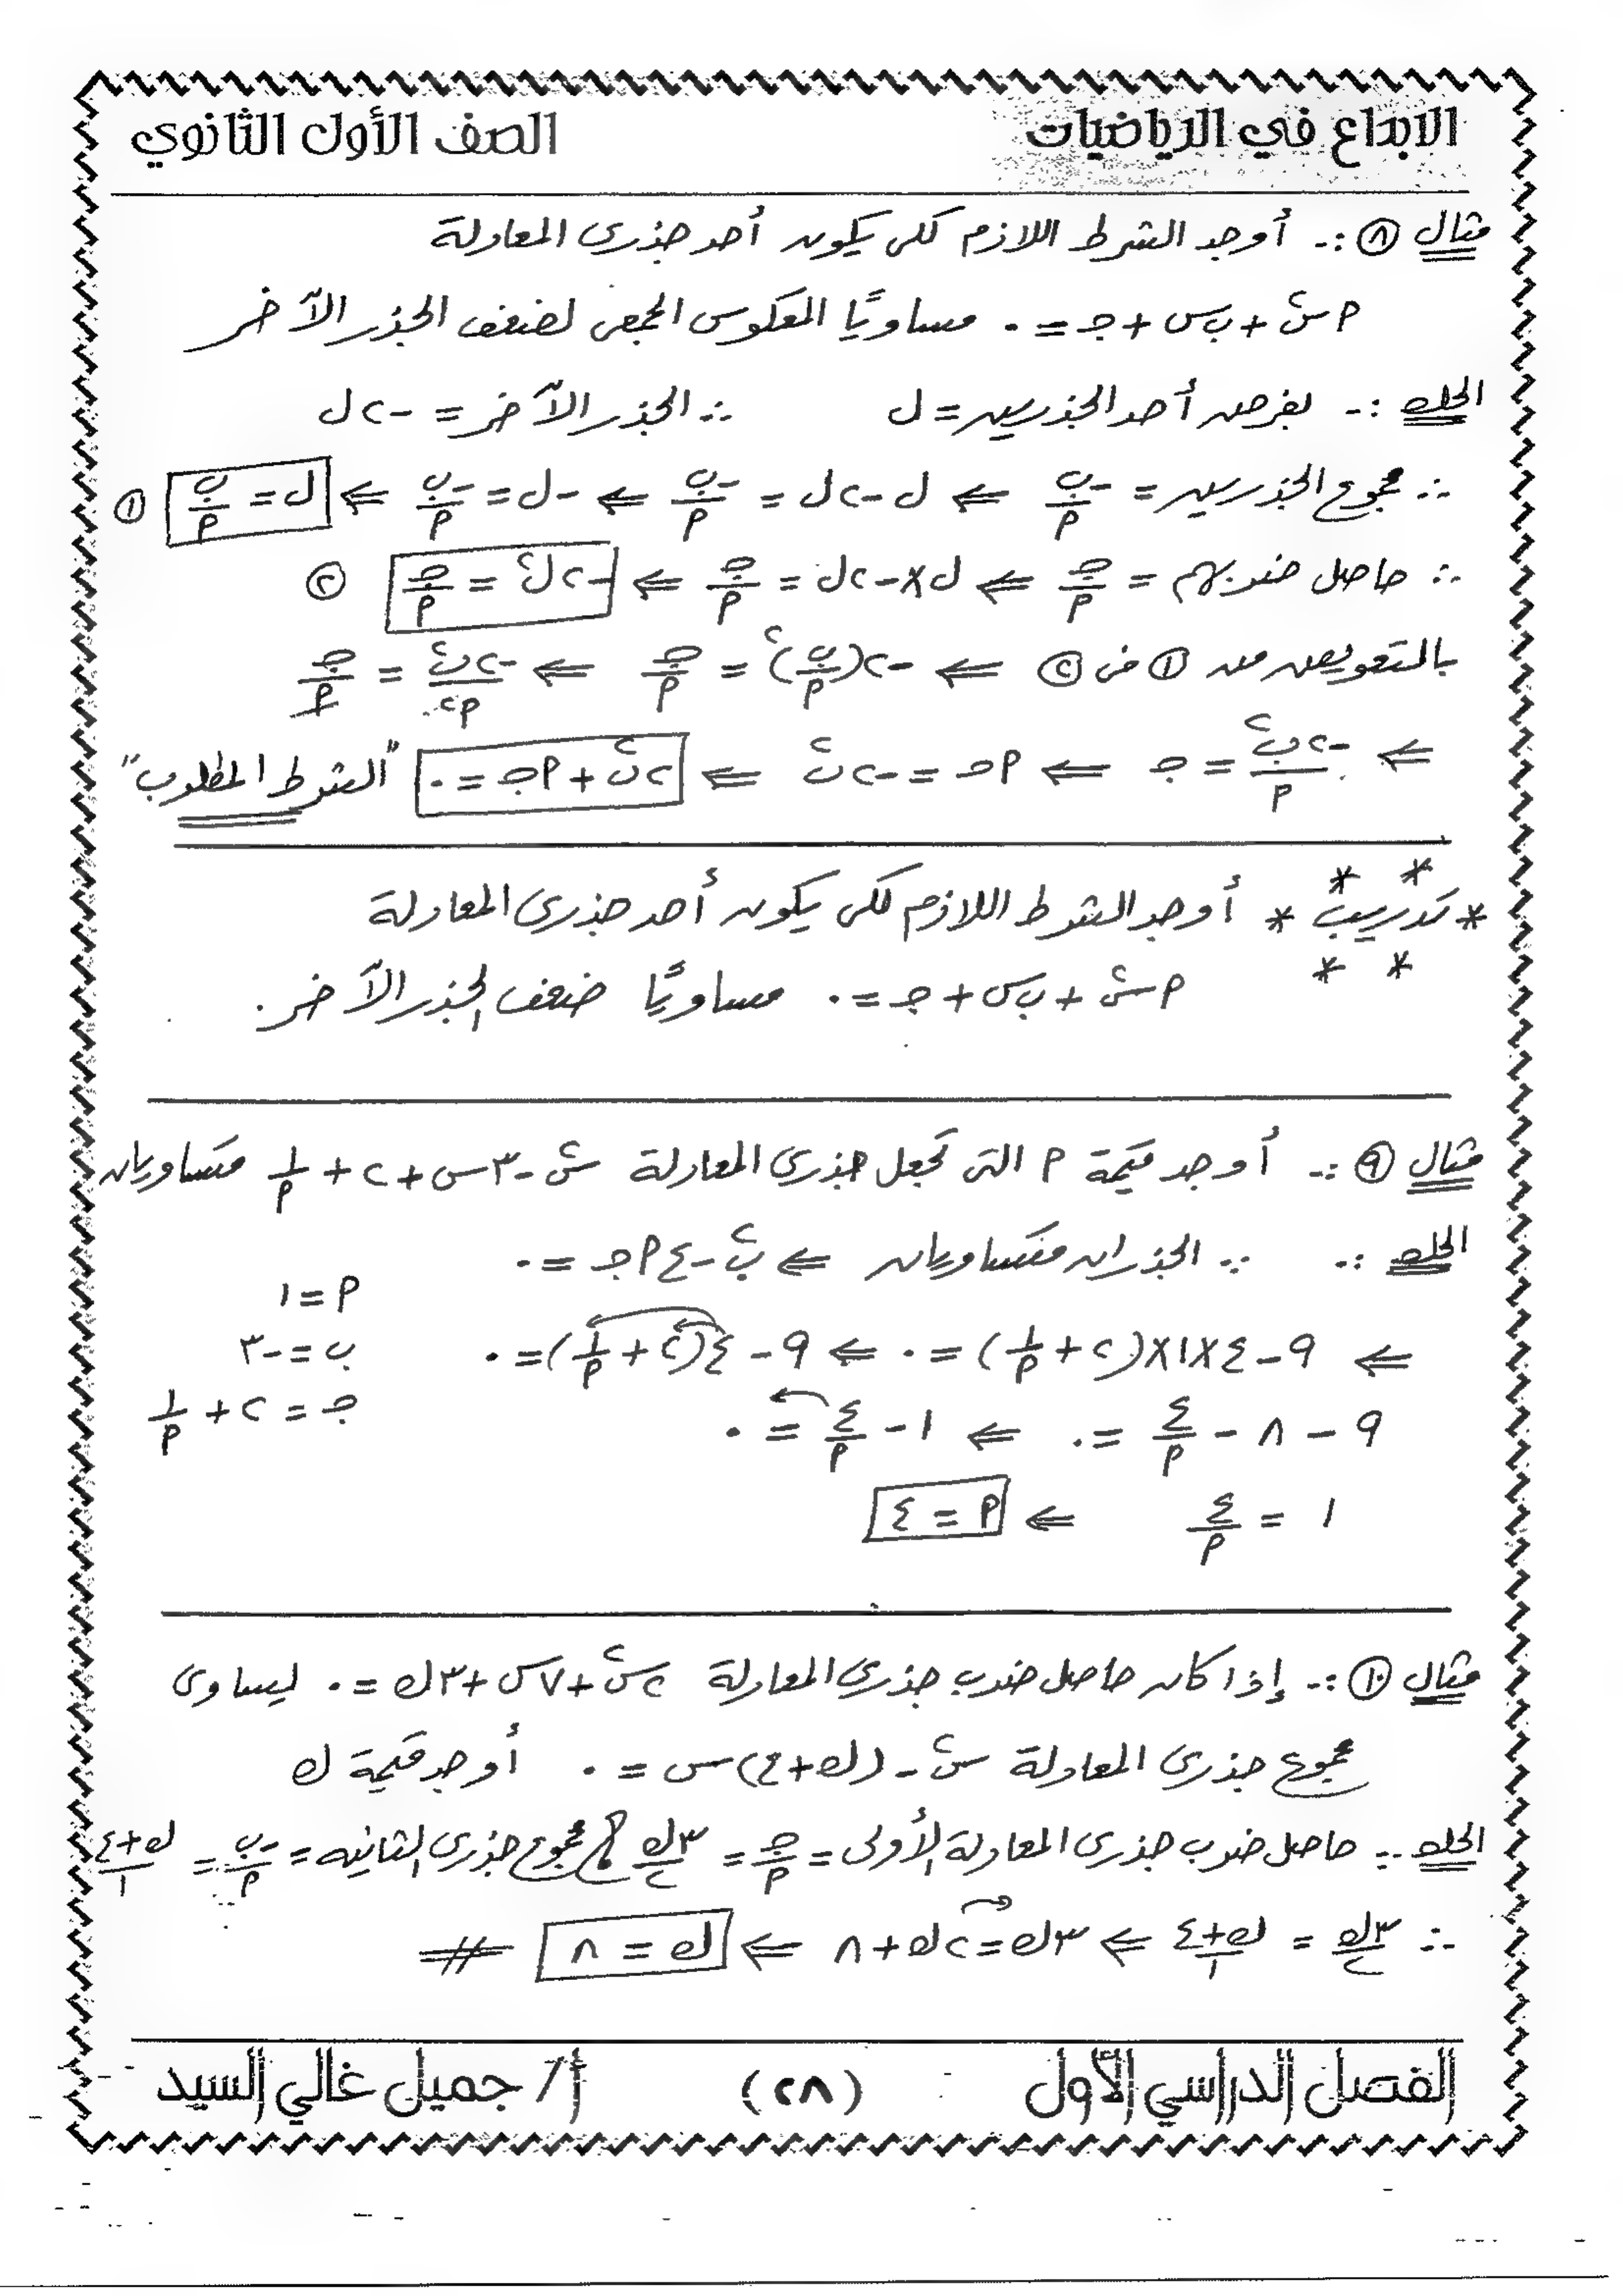 الابداع في الرياضيات
الصف الأول الثانوي
مثال ٨ :- أوجد الشرط اللازم لكى يكون أحد جذرى المعادلة
أس² + ب س + جـ = ٠ مساويًا المعكوس الجمعى لضعف الجذر الآخر
الحل :- بفرض أحد الجذرين = ل ∴ الجذر الآخر = -٢ل
∴ مجموع الجذرين = -ب/أ ⇐ ل - ٢ل = -ب/أ ⇐ -ل = -ب/أ ⇐ ل = ب/أ ①
∴ حاصل ضربهم = جـ/أ ⇐ ل × -٢ل = جـ/أ ⇐ -٢ل² = جـ/أ ②
بالتعويض من ① فى ② ⇐ -٢(ب/أ)² = جـ/أ ⇐ -٢ب²/أ² = جـ/أ
⇐ -٢ب²/أ = جـ ⇐ أجـ = -٢ب² ⇐ ٢ب² + أجـ = ٠ "الشرط المطلوب"
* تدريب * أوجد الشرط اللازم لكى يكون أحد جذرى المعادلة
أس² + ب س + جـ = ٠ مساويًا ضعف الجذر الآخر.
مثال ٩ :- أوجد قيمة أ التى تجعل جذرى المعادلة س² - ٣س + ٢ + ١/أ متساويان
الحل :- ∵ الجذران متساويان ⇐ ب² - ٤أجـ = ٠
أ = ١
⇐ ٩ - ٤×١×(٢ + ١/أ) = ٠ ⇐ ٩ - ٤(٢ + ١/أ) = ٠
ب = -٣
٩ - ٨ - ٤/أ = ٠ ⇐ ١ - ٤/أ = ٠
جـ = ٢ + ١/أ
١ = ٤/أ ⇐ أ = ٤
مثال ١٠ :- إذا كان حاصل ضرب جذرى المعادلة ٢س² + ٧س + ٣ك = ٠ يساوى
مجموع جذرى المعادلة س² - (ك + ٤)س = ٠ أوجد قيمة ك
الحل :- حاصل ضرب جذرى المعادلة الأولى = جـ/أ = ٣ك/٢ ، مجموع جذرى الثانيه = -ب/أ = ك+٤/١
∴ ٣ك/٢ = ك+٤/١ ⇐ ٣ك = ٢ك + ٨ ⇐ ك = ٨ #
الفصل الدراسي الأول
(٢٨)
أ/ جميل غالي السيد